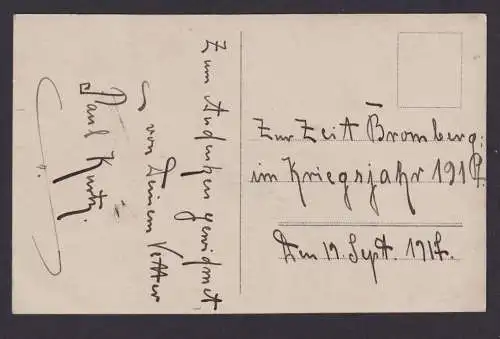 Zum Andenken gewidmet
von Deinem Vetter
Paul Kurtz.
Zur Zeit Bromberg.
im Kriegsjahr 1917.
Den 19. Sept. 1917.